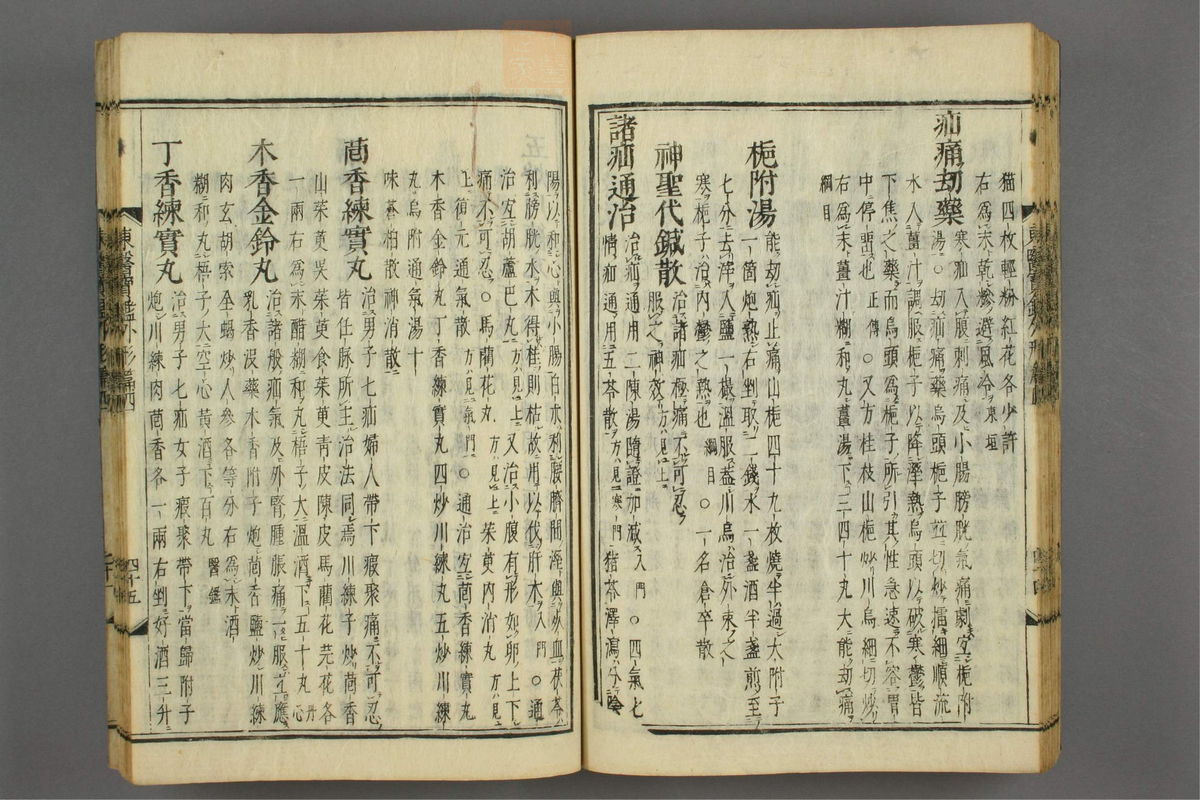 猫四枚輕粉紅花各少許
右爲末乾糝避風冷東垣
疝痛劫藥
寒疝入腹刺痛及小腸膀胱氣痛劇宜梔附
湯○劫疝痛藥烏頭梔子並切炒擂細順流
水入薑汁調服梔子以降濕熱烏頭以破寒鬱皆
下焦之藥而烏頭爲梔子所引其性急速不容胃
中停留也正傳○又方桂枝山梔炒川烏細切炒
右爲末薑汁糊和丸薑湯下三四十丸大能劫痛
綱目
梔附湯
能劫疝止痛山梔四十九枚燒半過大附子
一箇炮熟右剉取二錢水一盞酒半盞煎至
七分去滓入鹽一撮溫服盖川烏治外束之
寒梔子治內鬱之熱也綱目○一名倉卒散
神聖代鍼散
治諸疝極痛不可忍
服之神效方見上
諸疝通治
治疝通用二陳湯隨證加減入門○四氣七
情疝通用五苓散方見寒門猪苓澤瀉分陰
陽以和心與小腸白朮利腰臍間濕與死血茯苓
利膀胱水木得桂則枯故用以伐肝木入門○通
治宜胡蘆巴丸方見上又治小腹有形如卵上下
痛不可忍○馬藺花丸方見上茱萸內消丸方見
上復元通氣散方見氣門○通治宜茴香練實丸
木香金鈴丸丁香練實丸四炒川練丸五炒川練
丸烏附通氣湯十
味蒼栢散神消散
茴香練實丸
治男子七疝婦人帶下瘕聚痛不可忍
皆任脉所主治法同焉川練子炒茴香
山茱萸吳茱萸食茱萸靑皮陳皮馬藺花芫花各
一兩右爲末醋糊和丸梧子大溫酒下五十丸丹心
木香金鈴丸
治諸般疝氣及外腎腫脹痛一服立應
乳香沒藥木香附子炮茴香鹽炒川練
肉玄胡索全蝎炒人參各等分右爲末酒
糊和丸梧子大空心黃酒下百丸醫鑑
丁香練實丸
治男子七疝女子瘕聚帶下當歸附子
炮川練肉茴香各一兩右剉好酒三升
東醫寶鑑外形篇四
四十五